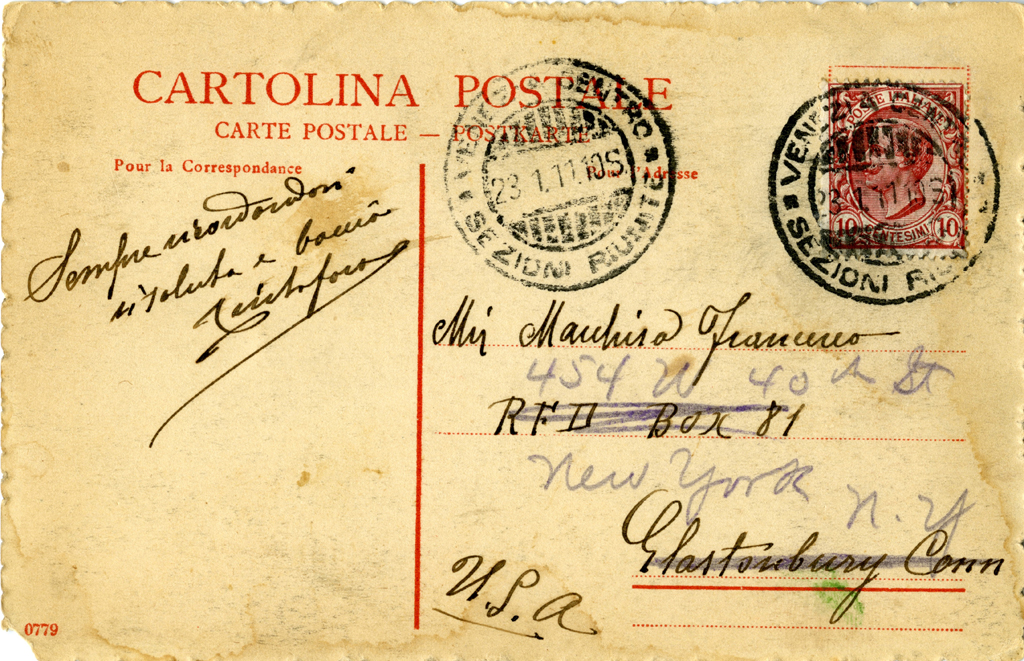 CARTOLINA POSTALE
CARTE POSTALE — POSTKARTE
Pour la Correspondance
Pour l'Adresse
VENEZIA CENTRO
23 1.11.10S
SEZIONI RIUNITE
VENEZIA CE
23 1.11.10S
SEZIONI RIU
POSTE ITALIANE
10 CENTESIMI 10
Sempre ricordandovi
risaluta e bacia
Mr Marchisa Francesco
454 W 40th St
RFD Box 81
New York
N.Y
Glastonbury Conn
U.S.A
0779